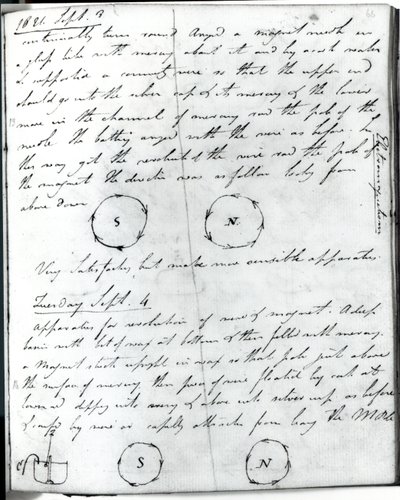 1821. Sept. 3
66
continually turn round. Arranged a magnet needle in
a glass tube with mercury about it and by a cork water
&c supported a connecting wire so that the upper end
should go into the silver cup & its mercury & the lower
move in the channel of mercury round the pole of the
needle. The battery arranged with the wire as before. In
this way got the revolution of the wire round the pole of
the magnet. The direction was as follow looking from
above down
Electromagnetism
S N
Very Satisfactory, but make more sensible apparatus.
Tuesday Sept. 4
Apparatus for revolution of wire & magnet. A deep
basin with bit of wax at bottom & then filled with mercury.
a Magnet stuck upright in wax so that pole just above
the surface of mercury then piece of wire floated by cork at
lower end dipping into mercury & above into silver cup as before
& by wire or capillary attraction from leaving the
S N